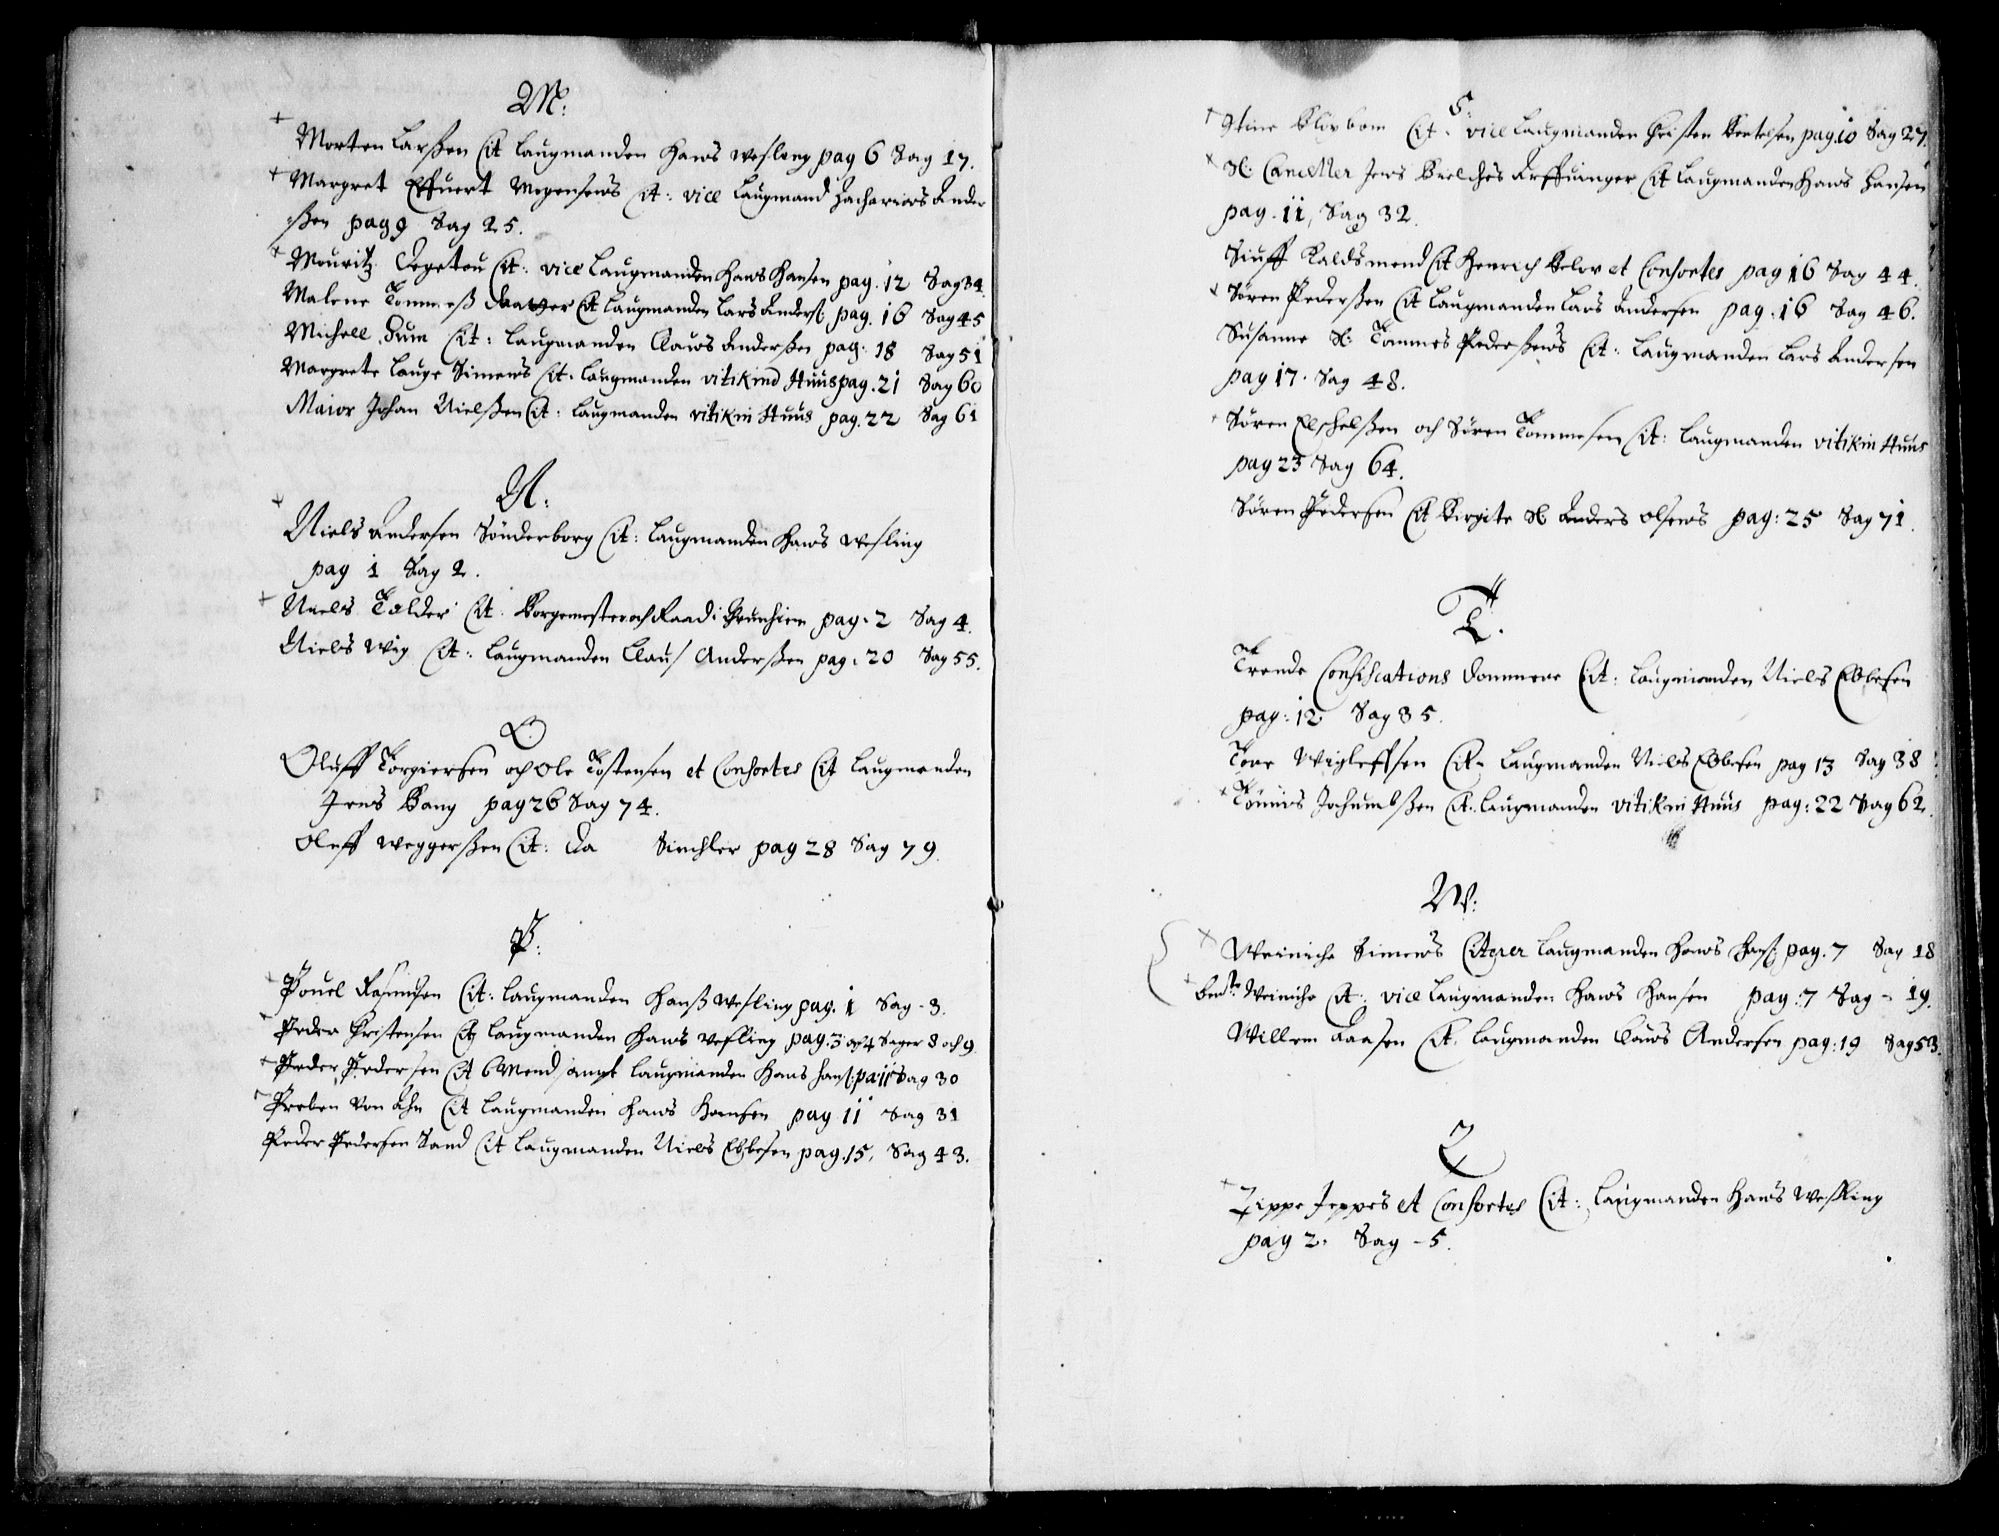 M:
+ Morten Larßen Cit Laugmanden Hans Wesling pag 6 Sag 17.
+ Margret Effuert Mogensens Cit: vice Laugmand Zacharias Ander
ßen pag 9 Sag 25.
+ Mouritz Cit: vice Laugmanden Hans Hansen pag. 12 Sag 34
Malene Tommeß Daatter Cit Laugmanden Lars Anders: pag. 16 Sag 45
Michell Cit: Laugmanden Claus Anderßen pag: 18 Sag 51
Margrete Lauge Simens Cit. Laugmanden vitikind Huus pag. 21 Sag 60
Maior Johan Nielßen Cit: Laugmanden vitikin Huus pag. 22 Sag 61
N:
+ Niels Andersen Sönderborg Cit: Laugmanden Hans Wesling
pag 1 Sag 2.
+ Niels Tolder Cit. Borgemester och Raad i Trunhiem pag. 2 Sag 4.
Niels Wig Cit: Laugmanden Claus Anderßen pag: 20 Sag 55.
O
Oluff Torgiersen och Ole Tostensen et Consortes Cit Laugmanden
Jens Bang pag 26 Sag 74.
Oluff Weggerßen Cit: Da Sinchler pag 28 Sag 79.
P:
+ Pouel Rasmusen Cit: Laugmanden Hanß Wesling pag. 1 Sag - 3.
Peder Christensen Cit Laugmanden Hans Wesling pag. 3 og 4 Sager 8 och 9
+ Peder Pedersen Cit 6 Mend sampt Laugmanden Hans Hans: pa: 11 Sag 30
Preben von Ahn Cit Laugmanden Hans Hansen pag 11 Sag 31
Peder Pedersen Sand Cit Laugmanden Niels Ebbesen pag. 15, Sag 43.
S.
+ Stine Cit: vice Laugmanden Christen Bertelsen pag. 10 Sag 27.
+ Sl: Canceller Jens Bielches Arffuinger Cit Laugmanden Hans Hansen
pag. 11, Sag 32.
Siuff Kaldsmend Cit Henrich Below et Consortes pag 16 Sag 44.
+ Sören Pederßen Cit Laugmanden Lars Andersen pag. 16 Sag 46.
Susanne Sl: Tommes Pederßens Cit: Laugmanden Lars Andersen
pag 17. Sag 48.
+ Sören Elchelßen och Sören Tommesen Cit: Laugmanden vitikin Huus
pag 23 Sag 64.
Sören Pedersen Cit Birgite Sl. Anders Olsens pag: 25 Sag 71.
T.
Trende Confiscations Dommere Cit: Laugmanden Niels Ebbesen
pag: 12 Sag 35.
Tore Wigleffsen Cit. Laugmanden Niels Ebbesen pag 13 Sag 38
+ Tönnis Jochumbßen Cit. Laugmanden vitikin Huus pag: 22 Sag 62.
W:
+ Weiniche Simens Citerer Laugmanden Hans Hans: pag. 7 Sag 18
+ Bndte Weiniche Cit: vice Laugmanden Hans Hansen pag: 7 Sag - 19.
Willem Aasen Cit. Laugmanden Claus Andersen pag: 19 Sag 53.
Z
+ Zippe Jeppes et Consortes Cit: Laugmanden Hans Wessling
pag 2. Sag - 5.